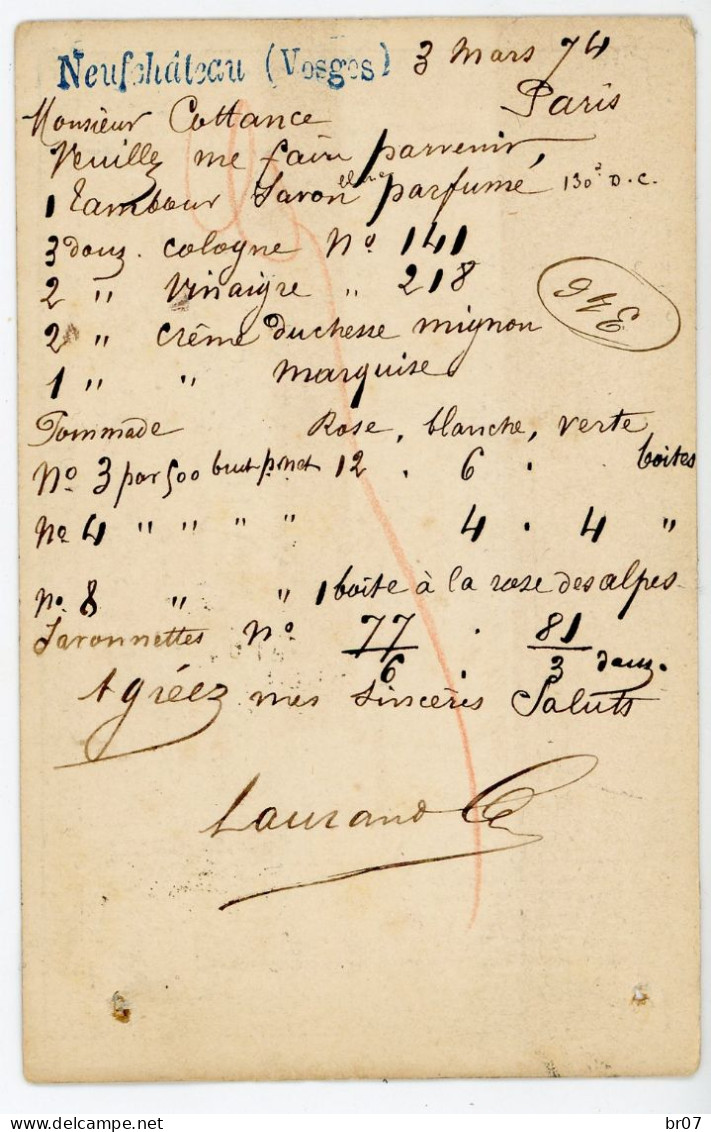 Neufchâteau (Vosges) 3 Mars 74
Paris
Monsieur Cottance
Veuillez me faire parvenir,
1 tambour Savon parfumé 130 D.C.
3 douz. cologne No 141
2 " vinaigre " 218
346
2 " crême duchesse mignon
1 " " marquise
Pommade Rose, blanche, verte
No 3 par 500 brut p. net 12 . 6 . boites
No 4 " " " " 4 . 4 "
No 8 " " 1 boite à la rose des alpes
Savonnettes No 77 . 81
6 . 3 douz.
Agréez mes sincères Saluts
Laurand
br07